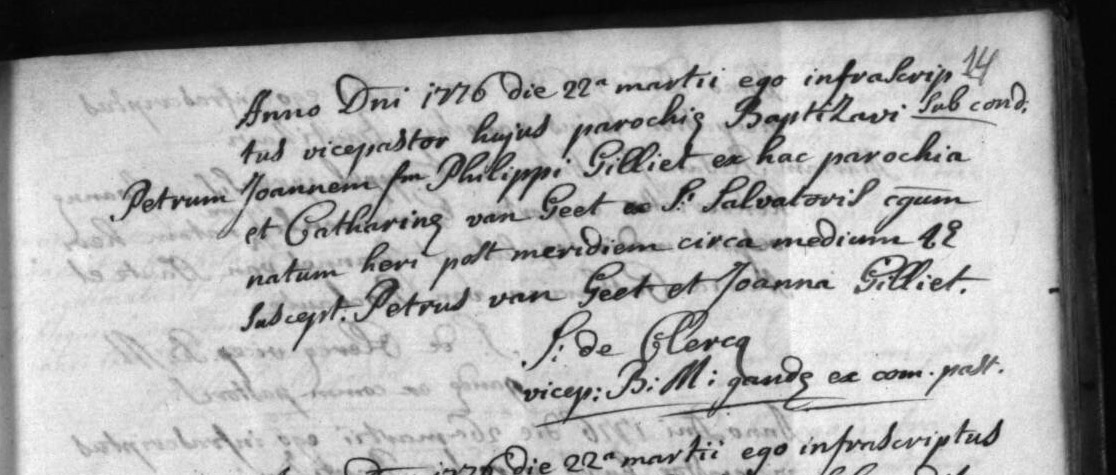 14
Anno Dni 1776 die 22ª martii ego infrascrip
tus vicepastor hujus parochiæ Baptizavi sub cond:
Petrum Joannem fm Philippi Gilliet ex hac parochia
et Catharinæ van Geet ex S: Salvatoris cgum
natum heri post meridiem circa medium
suscept. Petrus van Geet et Joanna Gilliet.
J: de Clercq
vicep: B: M: gandæ ex com. past.
Anno Dni 1776 die 22ª martii ego infrascriptus